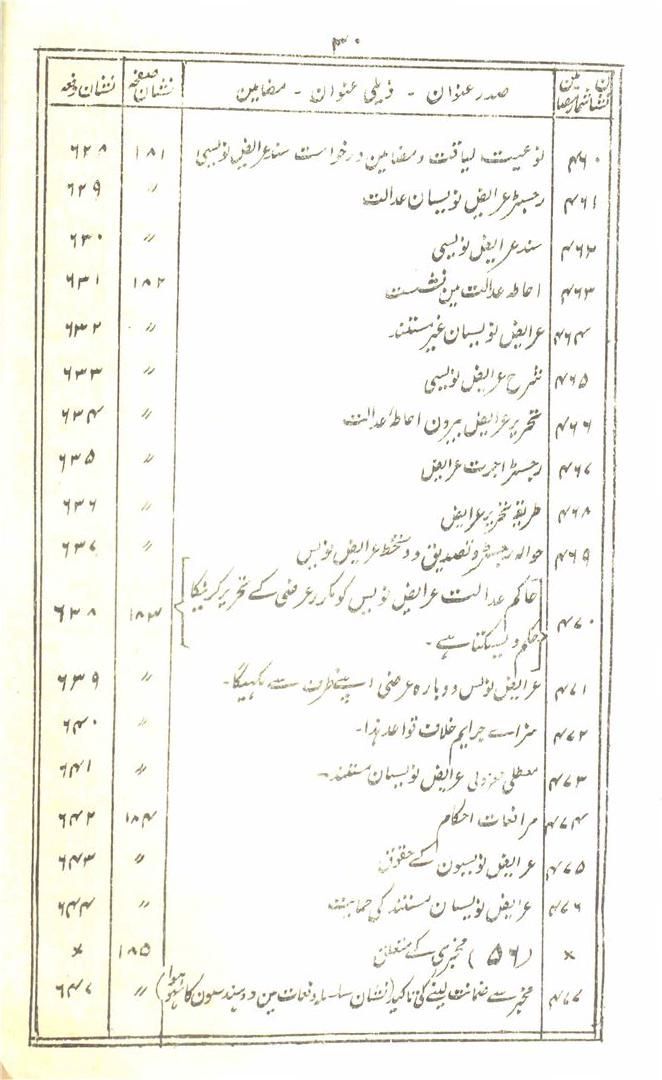 ۳۰
نشان شمار مضامین | صدر عنوان - ذیلی عنوان - مضامین | نشان صفحہ | نشان دفعہ
۴۶۰ | نوعیت لیاقت و مضامین درخواست سند عرایض نویسی | ۱۸۱ | ۶۲۸
۴۶۱ | رجسٹر عرایض نویسان عدالت | 〃 | ۶۲۹
۴۶۲ | سند عرایض نویسی | 〃 | ۶۳۰
۴۶۳ | احاطہ عدالت مین نشست | ۱۸۲ | ۶۳۱
۴۶۴ | عرایض نویسان غیر مستند | 〃 | ۶۳۲
۴۶۵ | شرح عرایض نویسی | 〃 | ۶۳۳
۴۶۶ | تحریر عرایض بیرون احاطہ عدالت | 〃 | ۶۳۴
۴۶۷ | رجسٹر اجرت عرایض | 〃 | ۶۳۵
۴۶۸ | طریقہ تحریر عرایض | 〃 | ۶۳۶
۴۶۹ | حوالہ رجسٹر و تصدیق و دستخط عرایض نویس | 〃 | ۶۳۷
۴۷۰ | حاکم عدالت عرایض نویس کو مکرر عرضی کے تحریر کرنیکا | ۱۸۳ | ۶۳۸
حکم دیسکتا ہے -
۴۷۱ | عرایض نویس دوبارہ عرضی اپنے طرف سے لکہیگا - | 〃 | ۶۳۹
۴۷۲ | سزاے جرایم خلاف قواعد ہذا - | 〃 | ۶۴۰
۴۷۳ | معطلی معزولی عرایض نویسان مستند - | 〃 | ۶۴۱
۴۷۴ | مرافعات احکام | ۱۸۴ | ۶۴۲
۴۷۵ | عرایض نویسون کے حقوق | 〃 | ۶۴۳
۴۷۶ | عرایض نویسان مستند کی حمایت | 〃 | ۶۴۴
× | (۵۶) مخبری کے متعلق | ۱۸۵ | ×
۴۷۷ | مخبر سے ضمانت لینے کی تاکید (نشان سلسلہ دفعات مین دو ہندسون کا سہو ہوا) | 〃 | ۶۴۷